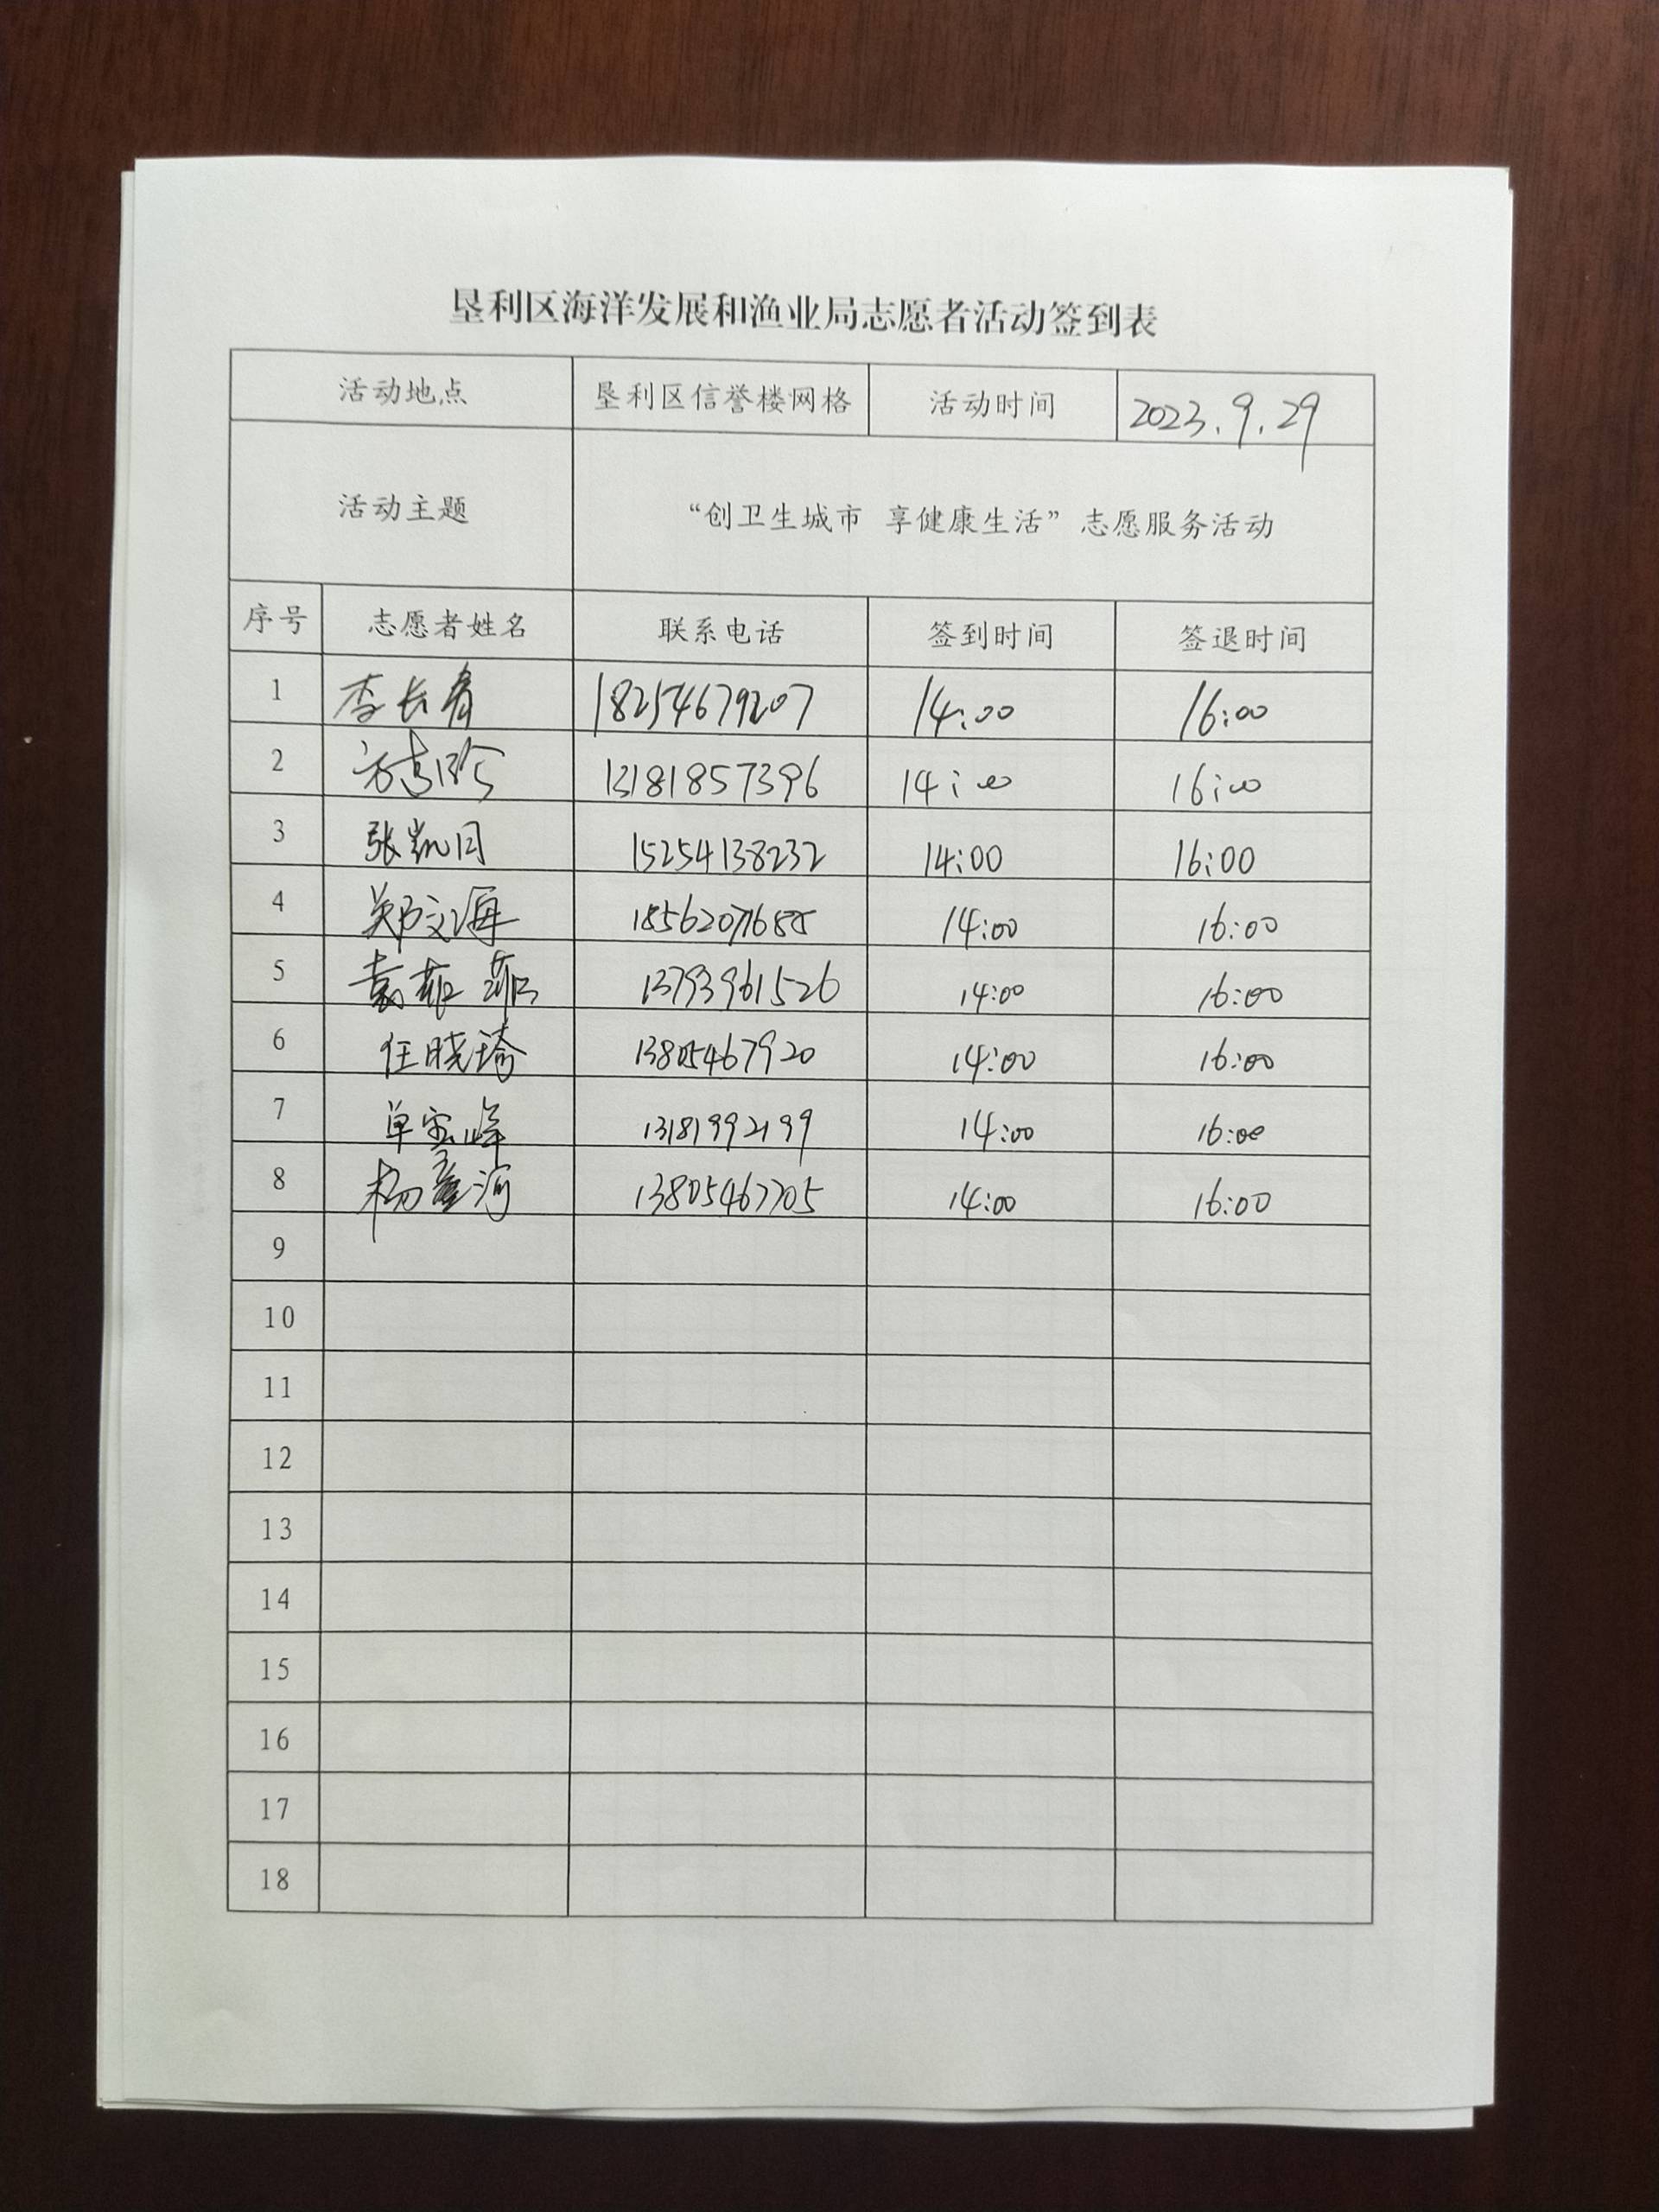 垦利区海洋发展和渔业局志愿者活动签到表
活动地点 垦利区信誉楼网格 活动时间 2023.9.29
活动主题 “创卫生城市 享健康生活”志愿服务活动
序号 志愿者姓名 联系电话 签到时间 签退时间
1 李长青 18254679207 14:00 16:00
2 13181857396 14:00 16:00
3 张凯月 15254138232 14:00 16:00
4 郑文海 14:00 16:00
5 袁菲菲 13793961526 14:00 16:00
6 任晓琦 13805467920 14:00 16:00
7 单宝峰 13181992199 14:00 16:00
8 杨童河 13805467705 14:00 16:00
9
10
11
12
13
14
15
16
17
18